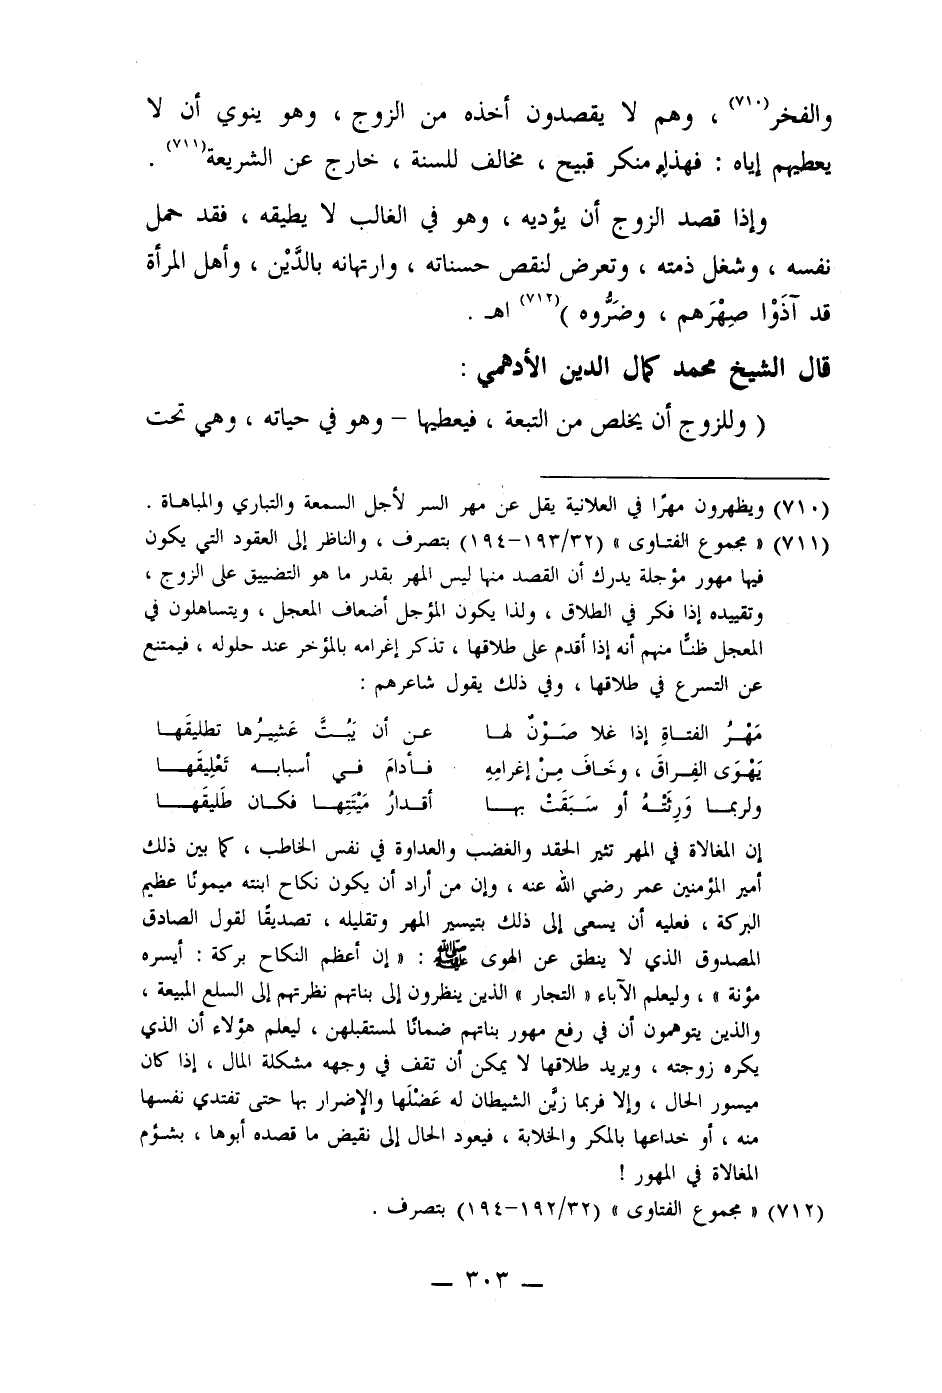 والفخر(٧١٠) ، وهم لا يقصدون أخذه من الزوج ، وهو ينوي أن لا
يعطيهم إياه : فهذا منكر قبيح ، مخالف للسنة ، خارج عن الشريعة(٧١١) .
وإذا قصد الزوج أن يؤديه ، وهو في الغالب لا يطيقه ، فقد حمل
نفسه ، وشغل ذمته ، وتعرض لنقص حسناته ، وارتهانه بالدَّيْن ، وأهل المرأة
قد آذَوْا صِهْرَهم ، وضَرُّوه )(٧١٢) اهـ .
قال الشيخ محمد كمال الدين الأدهمي :
( وللزوج أن يخلص من التبعة ، فيعطيها – وهو في حياته ، وهي تحت
(٧١٠) ويظهرون مهرًا في العلانية يقل عن مهر السر لأجل السمعة والتباري والمباهاة .
(٧١١) « مجموع الفتاوى » (٣٢/١٩٣–١٩٤) بتصرف ، والناظر إلى العقود التي يكون
فيها مهور مؤجلة يدرك أن القصد منها ليس المهر بقدر ما هو التضييق على الزوج ،
وتقييده إذا فكر في الطلاق ، ولذا يكون المؤجل أضعاف المعجل ، ويتساهلون في
المعجل ظنًّا منهم أنه إذا أقدم على طلاقها ، تذكر إغرامه بالمؤخر عند حلوله ، فيمتنع
عن التسرع في طلاقها ، وفي ذلك يقول شاعرهم :
مَهْـرُ الفتـاةِ إذا غلا صَـوْنٌ لها عـن أن يَبُـتَّ عَشِيـرُها تطليقَهـا
يَهْوَى الفِراقَ ، وخَافَ مِنْ إغرامِهِ فـأدامَ فـي أسبابـه تَعْلِيقَهـا
ولربمـا وَرِثَتْـهُ أو سَـبَقَتْ بهـا أقـدارُ مَيْتَتِهـا فكـان طَلِيقَهـا
إن المغالاة في المهر تثير الحقد والغضب والعداوة في نفس الخاطب ، كما بين ذلك
أمير المؤمنين عمر رضي الله عنه ، وإن من أراد أن يكون نكاح ابنته ميمونًا عظيم
البركة ، فعليه أن يسعى إلى ذلك بتيسير المهر وتقليله ، تصديقًا لقول الصادق
المصدوق الذي لا ينطق عن الهوى ﷺ : « إن أعظم النكاح بركة : أيسره
مؤنة » ، وليعلم الآباء « التجار » الذين ينظرون إلى بناتهم نظرتهم إلى السلع المبيعة ،
والذين يتوهمون أن في رفع مهور بناتهم ضمانًا لمستقبلهن ، ليعلم هؤلاء أن الذي
يكره زوجته ، ويريد طلاقها لا يمكن أن تقف في وجهه مشكلة المال ، إذا كان
ميسور الحال ، وإلا فربما زيَّن الشيطان له عَضْلَها والإضرار بها حتى تفتدي نفسها
منه ، أو خداعها بالمكر والخلابة ، فيعود الحال إلى نقيض ما قصده أبوها ، بشؤم
المغالاة في المهور !
(٧١٢) « مجموع الفتاوى » (٣٢/١٩٢–١٩٤) بتصرف .
— ٣٠٣ —